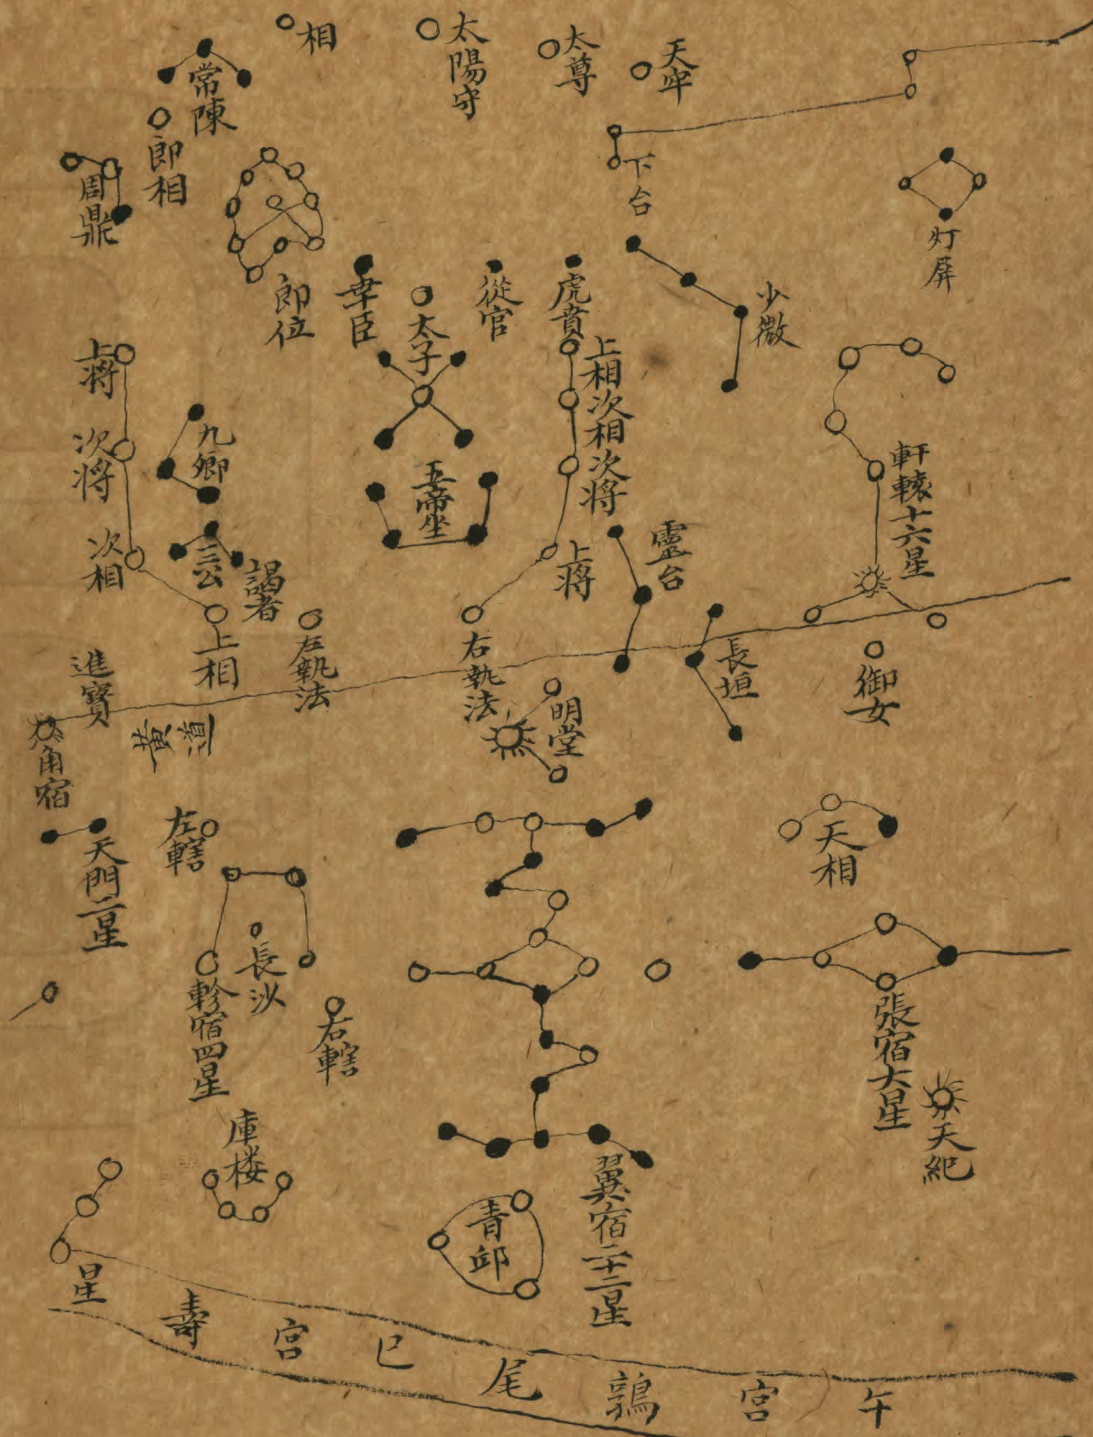 相
太陽守
太尊
天牢
常陳
郎相
周鼎
下台
灯屏
郎位
幸臣
太子
從官
虎賁
少微
上将
次将
次相
上相
九卿
三公
謁者
五帝坐
上相次相次将
上将
靈台
軒轅十六星
左執法
右執法
明堂
長垣
御女
進賢
黄道
角宿
天門二星
左轄
長沙
軫宿四星
右轄
天相
張宿大星
天紀
庫楼
青邱
翼宿二十二星
午宮鶉尾巳宮壽星